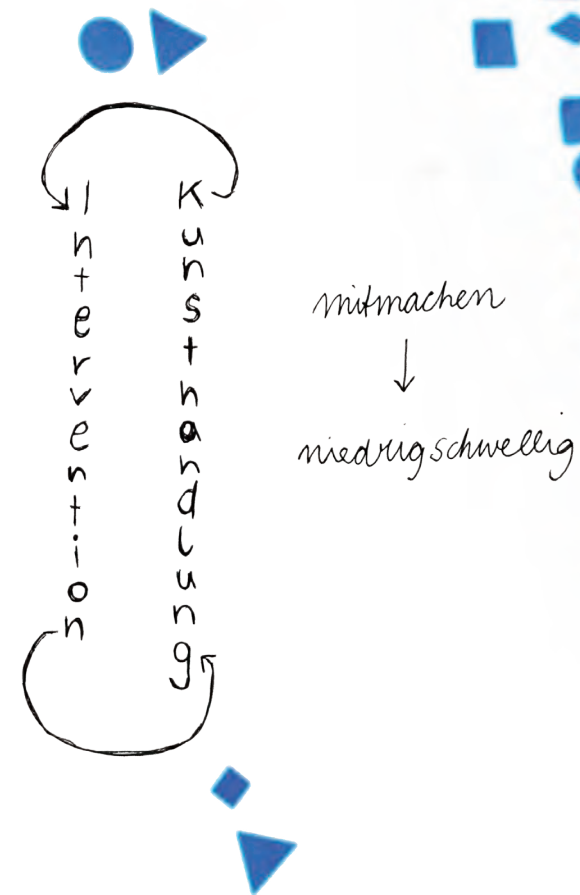 Intervention
Kunsthandlung
mitmachen
niedrigschwellig